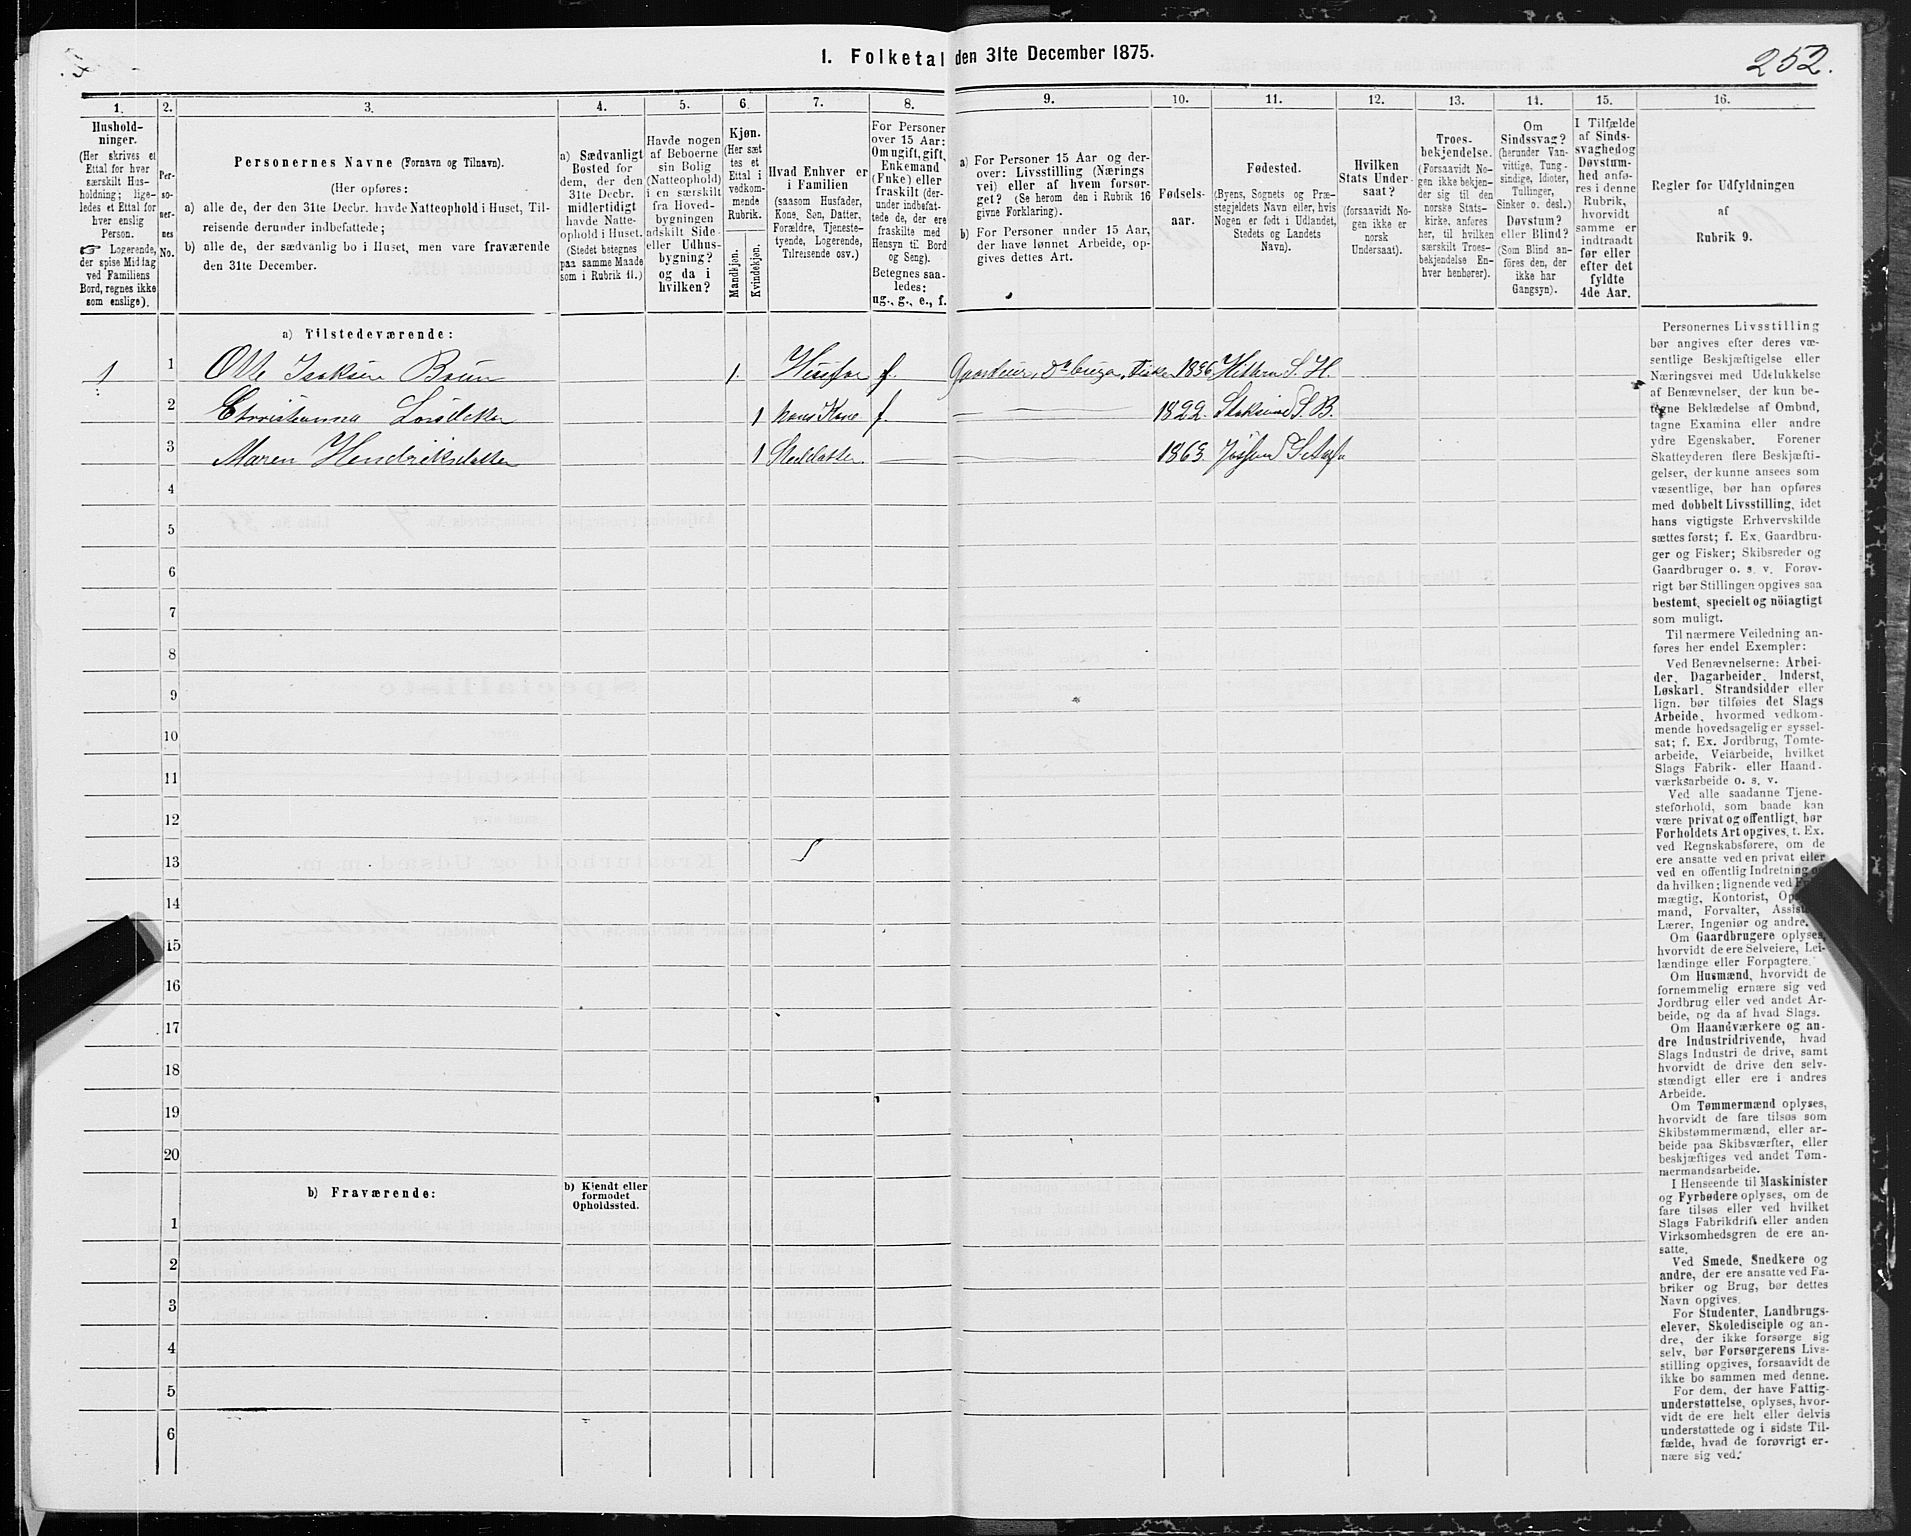 252.
1. Folketal den 31te December 1875.
1. 2. 3. 4. 5. 6. 7. 8. 9. 10. 11. 12. 13. 14. 15. 16.
Hushold-
ninger.
(Her skrives et
Ettal for hver
særskilt Hus-
holdning; lige-
ledes et Ettal for
hver enslig
Person.
☞ Logerende,
der spise Middag
ved Familiens
Bord, regnes ikke
som enslige).
Per-
so-
ner-
nes
No.
Personernes Navne (Fornavn og Tilnavn).
(Her opføres:
a) alle de, der den 31te Decbr. havde Natteophold i Huset, Til-
reisende derunder indbefattede;
b) alle de, der sædvanlig bo i Huset, men vare fraværende
den 31te December.
a) Sædvanligt
Bosted for
dem, der den
31te Decbr.
midlertidigt
havde Natte-
ophold i Huset.
(Stedet betegnes
paa samme Maade
som i Rubrik 11.)
Havde nogen
af Beboerne
sin Bolig
(Natteophold)
i en særskilt
fra Hoved-
bygningen
adskilt Side-
eller Udhus-
bygning?
og da i
hvilken?
Kjøn.
(Her sæt-
tes et
Ettal i
vedkom-
mende
Rubrik.
Mandkjøn.
Kvindekjøn.
Hvad Enhver er
i Familien
(saasom Husfader,
Kone, Søn, Datter,
Forældre, Tjeneste-
tyende, Logerende,
Tilreisende osv.)
For Personer
over 15 Aar:
Om ugift, gift,
Enkemand
(Enke) eller
fraskilt (der-
under indbefat-
tede de, der ere
fraskilte med
Hensyn til Bord
og Seng).
Betegnes saa-
ledes:
ug., g., e., f.
a) For Personer 15 Aar og der-
over: Livsstilling (Nærings
vei) eller af hvem forsør-
get? (Se herom den i Rubrik 16
givne Forklaring).
b) For Personer under 15 Aar,
der have lønnet Arbeide, op-
gives dettes Art.
Fødsels-
aar.
Fødested.
(Byens, Sognets og Præ-
stegjeldets Navn eller, hvis
Nogen er født i Udlandet,
Stedets og Landets
Navn).
Hvilken
Stats Under-
saat?
(forsaavidt No-
gen ikke er
norsk
Undersaat).
Troes-
bekjendelse.
(Forsaavidt No-
gen ikke bekjen-
der sig til den
norske Stats-
kirke, anføres
her, til hvilken
særskilt Troes-
bekjendelse En-
hver henhører).
Om
Sindssvag?
(herunder Van-
vittige, Tung-
sindige, Idioter,
Tullinger,
Sinker o. desl.)
Døvstum?
eller Blind?
(Som Blind an-
føres den, der
ikke har
Gangsyn).
I Tilfælde
af Sinds-
svaghed og
Døvstum-
hed anfø-
res i denne
Rubrik,
hvorvidt
samme er
indtraadt
før eller
efter det
fyldte
4de Aar.
Regler for Udfyldningen
af
Rubrik 9.
a) Tilstedeværende:
1 1 Isaksen 1. f. 1836
2 1 hans Kone f. 1822.
3 Maren Hendriksdatter 1 1863
4
5
6
7
8
9
10
11
12
13
14
15
16
17
18
19
20
b) Fraværende:
b) Kjendt eller
formodet
Opholdssted.
1
2
3
4
5
6
Personernes Livsstilling
bør angives efter deres væ-
sentlige Beskjæftigelse eller
Næringsvei med Udelukkelse
af Benævnelser, der kun be-
tegne Beklædelse af Ombud,
tagne Examina eller andre
ydre Egenskaber. Forener
Skatteyderen flere Beskjæfti-
gelser, der kunne ansees som
væsentlige, bør han opføres
med dobbelt Livsstilling, idet
hans vigtigste Erhvervskilde
sættes først; f. Ex. Gaardbru-
ger og Fisker; Skibsreder og
Gaardbruger o. s. v. Forøv-
rigt bør Stillingen opgives saa
bestemt, specielt og nöiagtigt
som muligt.
Til nærmere Veiledning an-
føres her endel Exempler:
Ved Benævnelserne: Arbei-
der, Dagarbeider, Inderst,
Løskarl, Strandsidder eller
lign. bør tilføies det Slags
Arbeide, hvormed vedkom-
mende hovedsagelig er syssel-
sat; f. Ex. Jordbrug, Tomte-
arbeide, Veiarbeide, hvilket
Slags Fabrik- eller Haand-
værksarbeide o. s. v.
Ved alle saadanne Tjene-
steforhold, som baade kan
være privat og offentligt, bør
Forholdets Art opgives, t. Ex.
ved Regnskabsførere, om de
ere ansatte ved en privat eller
ved en offentlig Indretning
da hvilken; lignende ved
mægtig, Kontorist,
mand, Forvalter,
Lærer, Ingeniør og andre.
Om Gaardbrugere oplyses,
hvorvidt de ere Selveiere, Lei-
lændinge eller Forpagtere.
Om Husmænd, hvorvidt de
fornemmelig ernære sig ved
Jordbrug eller ved andet Ar-
beide, og da af hvad Slags.
Om Haandværkere og an-
dre Industridrivende, hvad
Slags Industri de drive, samt
hvorvidt de drive den selv-
stændigt eller ere i andres
Arbeide.
Om Tømmermænd oplyses,
hvorvidt de fare tilsøs som
Skibstømmermænd, eller ar-
beide paa Skibsværfter, eller
beskjæftiges ved andet Tøm-
mermandsarbeide.
I Henseende til Maskinister
og Fyrbødere oplyses, om de
fare tilsøs eller ved hvilket
Slags Fabrikdrift eller anden
Virksomhedsgren de ere an-
satte.
Ved Smede, Snedkere og
andre, der ere ansatte ved Fa-
briker og Brug, bør dettes
Navn opgives.
For Studenter, Landbrugs-
elever, Skoledisciple og an-
dre, der ikke forsørge sig
selv, bør Forsørgerens Livs-
stilling opgives, forsaavidt de
ikke bo sammen med denne.
For dem, der have Fattig-
understøttelse, oplyses, hvor-
vidt de ere helt eller delvis
understøttede og i sidste Til-
fælde, hvad de forøvrigt er-
nære sig ved.